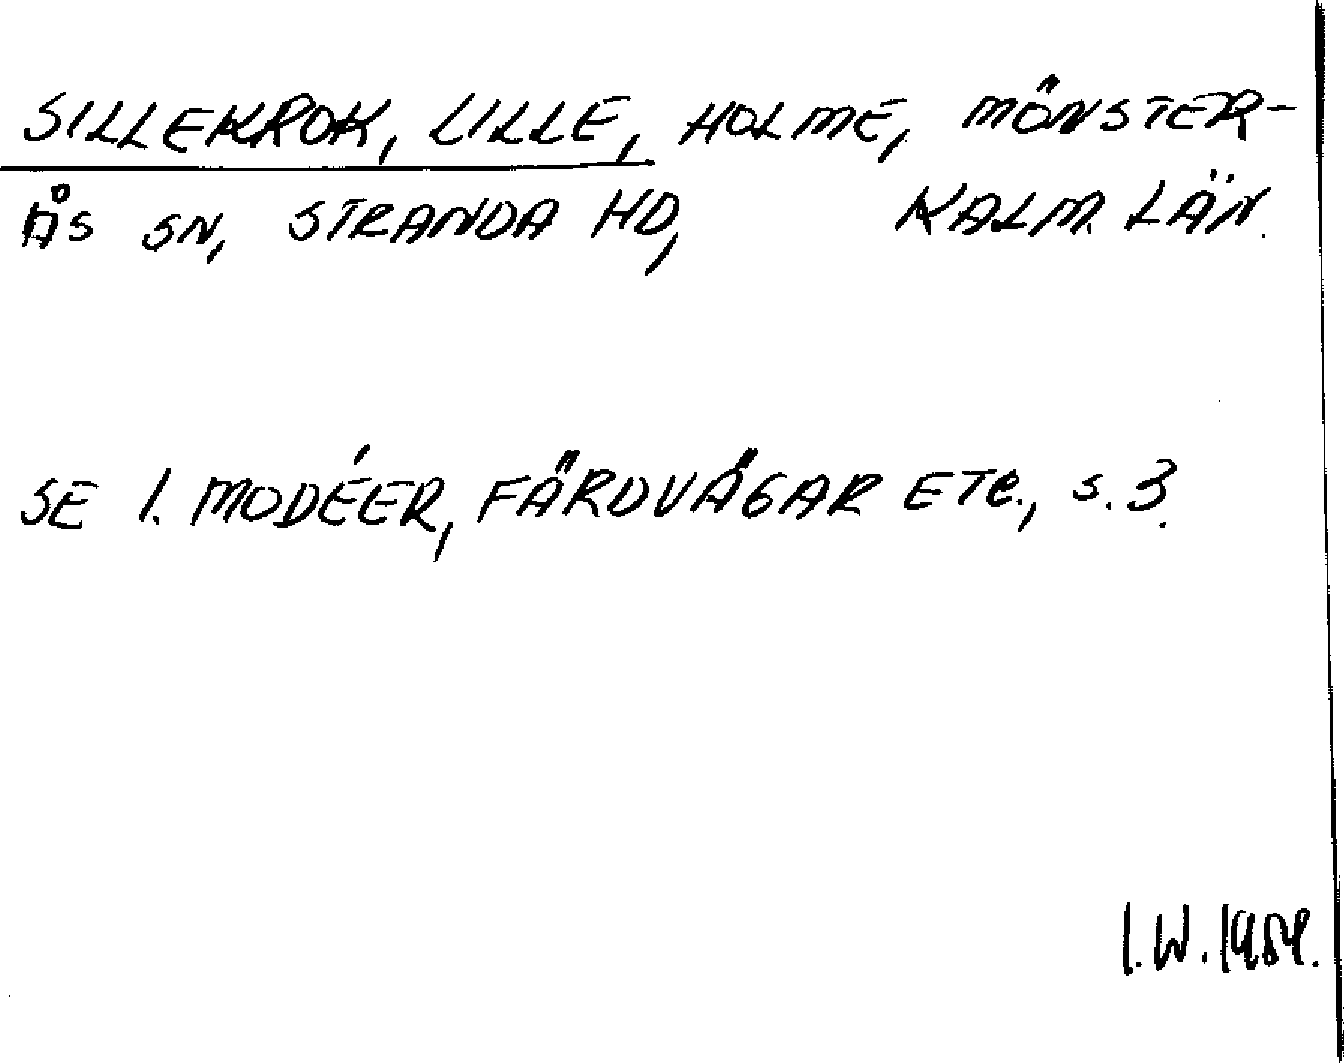 SILLEKROK, LILLE, HOLME, MÖNSTER-
ÅS SN, STRANDA HD, KALM. LÄN.
SE I. MODÉER, FÄRDVÄGAR ETC., S. 3.
I.W.